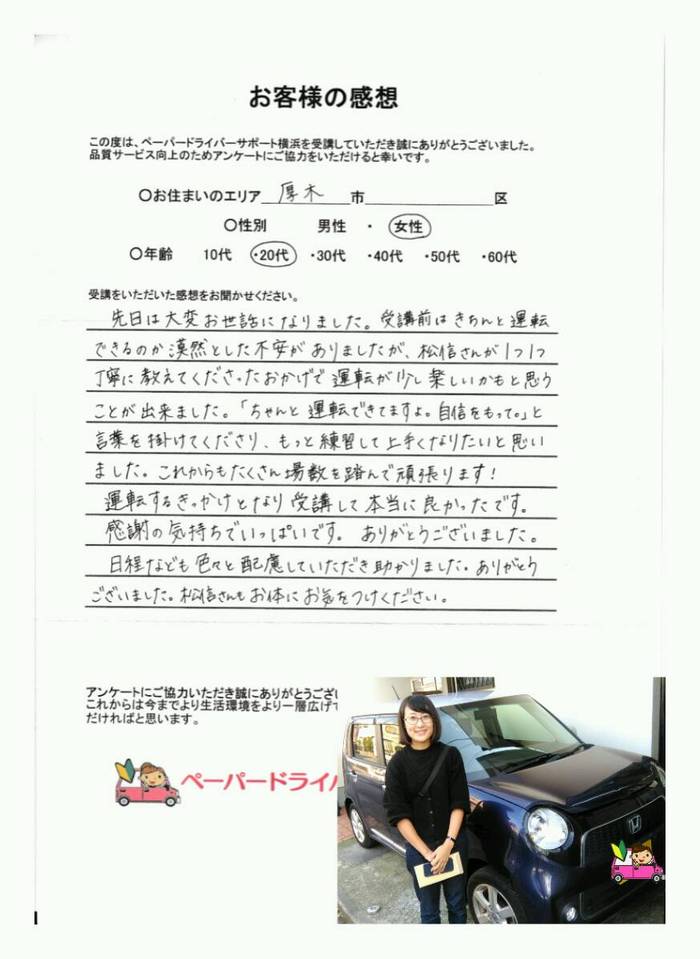 お客様の感想
この度は、ペーパードライバーサポート横浜を受講していただき誠にありがとうございました。
品質サービス向上のためアンケートにご協力をいただけると幸いです。
〇お住まいのエリア 厚木 市 区
〇性別 男性 ・ 女性
〇年齢 10代 ・20代 ・30代 ・40代 ・50代 ・60代
受講をいただいた感想をお聞かせください。
先日は大変お世話になりました。受講前はきちんと運転
できるのか漠然とした不安がありましたが、松信さんが1つ1つ
丁寧に教えてくださったおかげで運転が少し楽しいかもと思う
ことが出来ました。「ちゃんと運転できてますよ。自信をもって。」と
言葉を掛けてくださり、もっと練習して上手くなりたいと思い
ました。これからもたくさん場数を踏んで頑張ります!
運転するきっかけとなり受講して本当に良かったです。
感謝の気持ちでいっぱいです。ありがとうございました。
日程なども色々と配慮していただき助かりました。ありがとう
ございました。松信さんもお体にお気をつけください。
アンケートにご協力いただき誠にありがとうござい
これからは今までより生活環境をより一層広げて
だければと思います。
ペーパードライバ